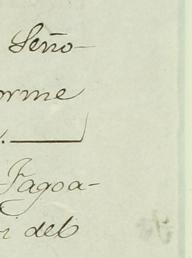 Seño-
orme
Fagoa-
i del